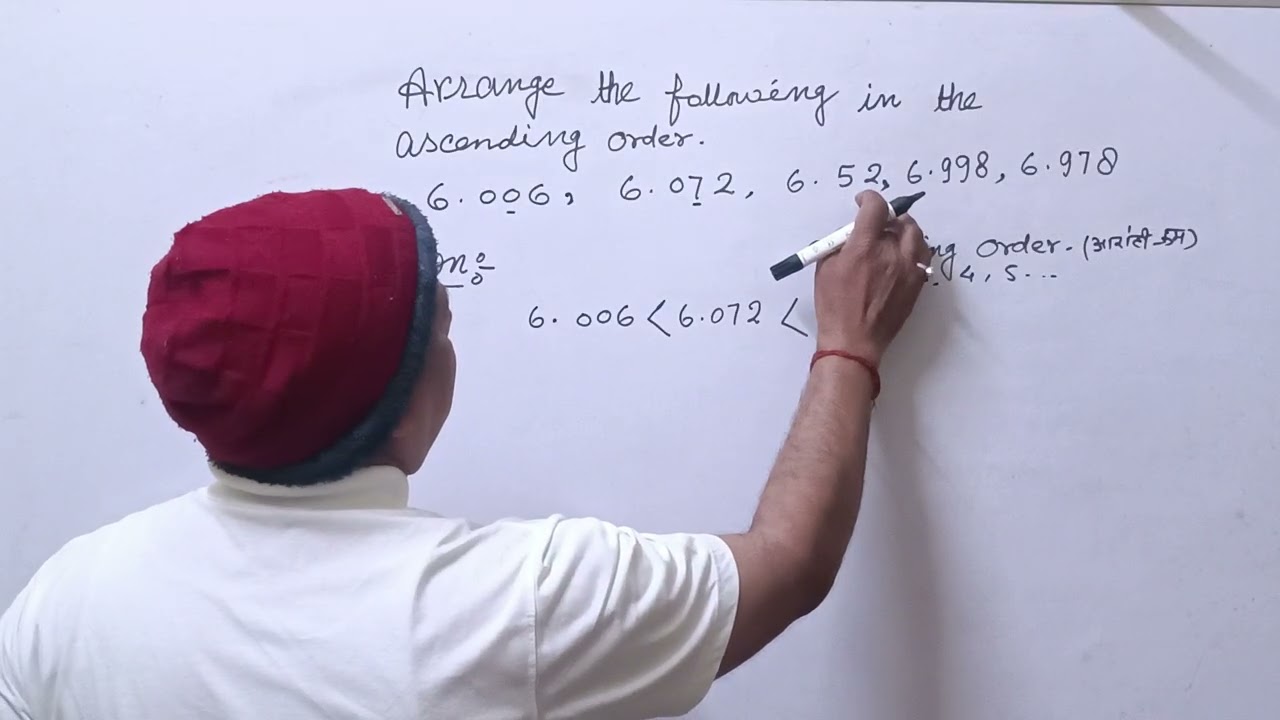 Arrange the following in the
ascending order.
6.006, 6.072, 6.52, 6.998, 6.978
order. (आरोही क्रम)
4, 5...
6.006 < 6.072 <